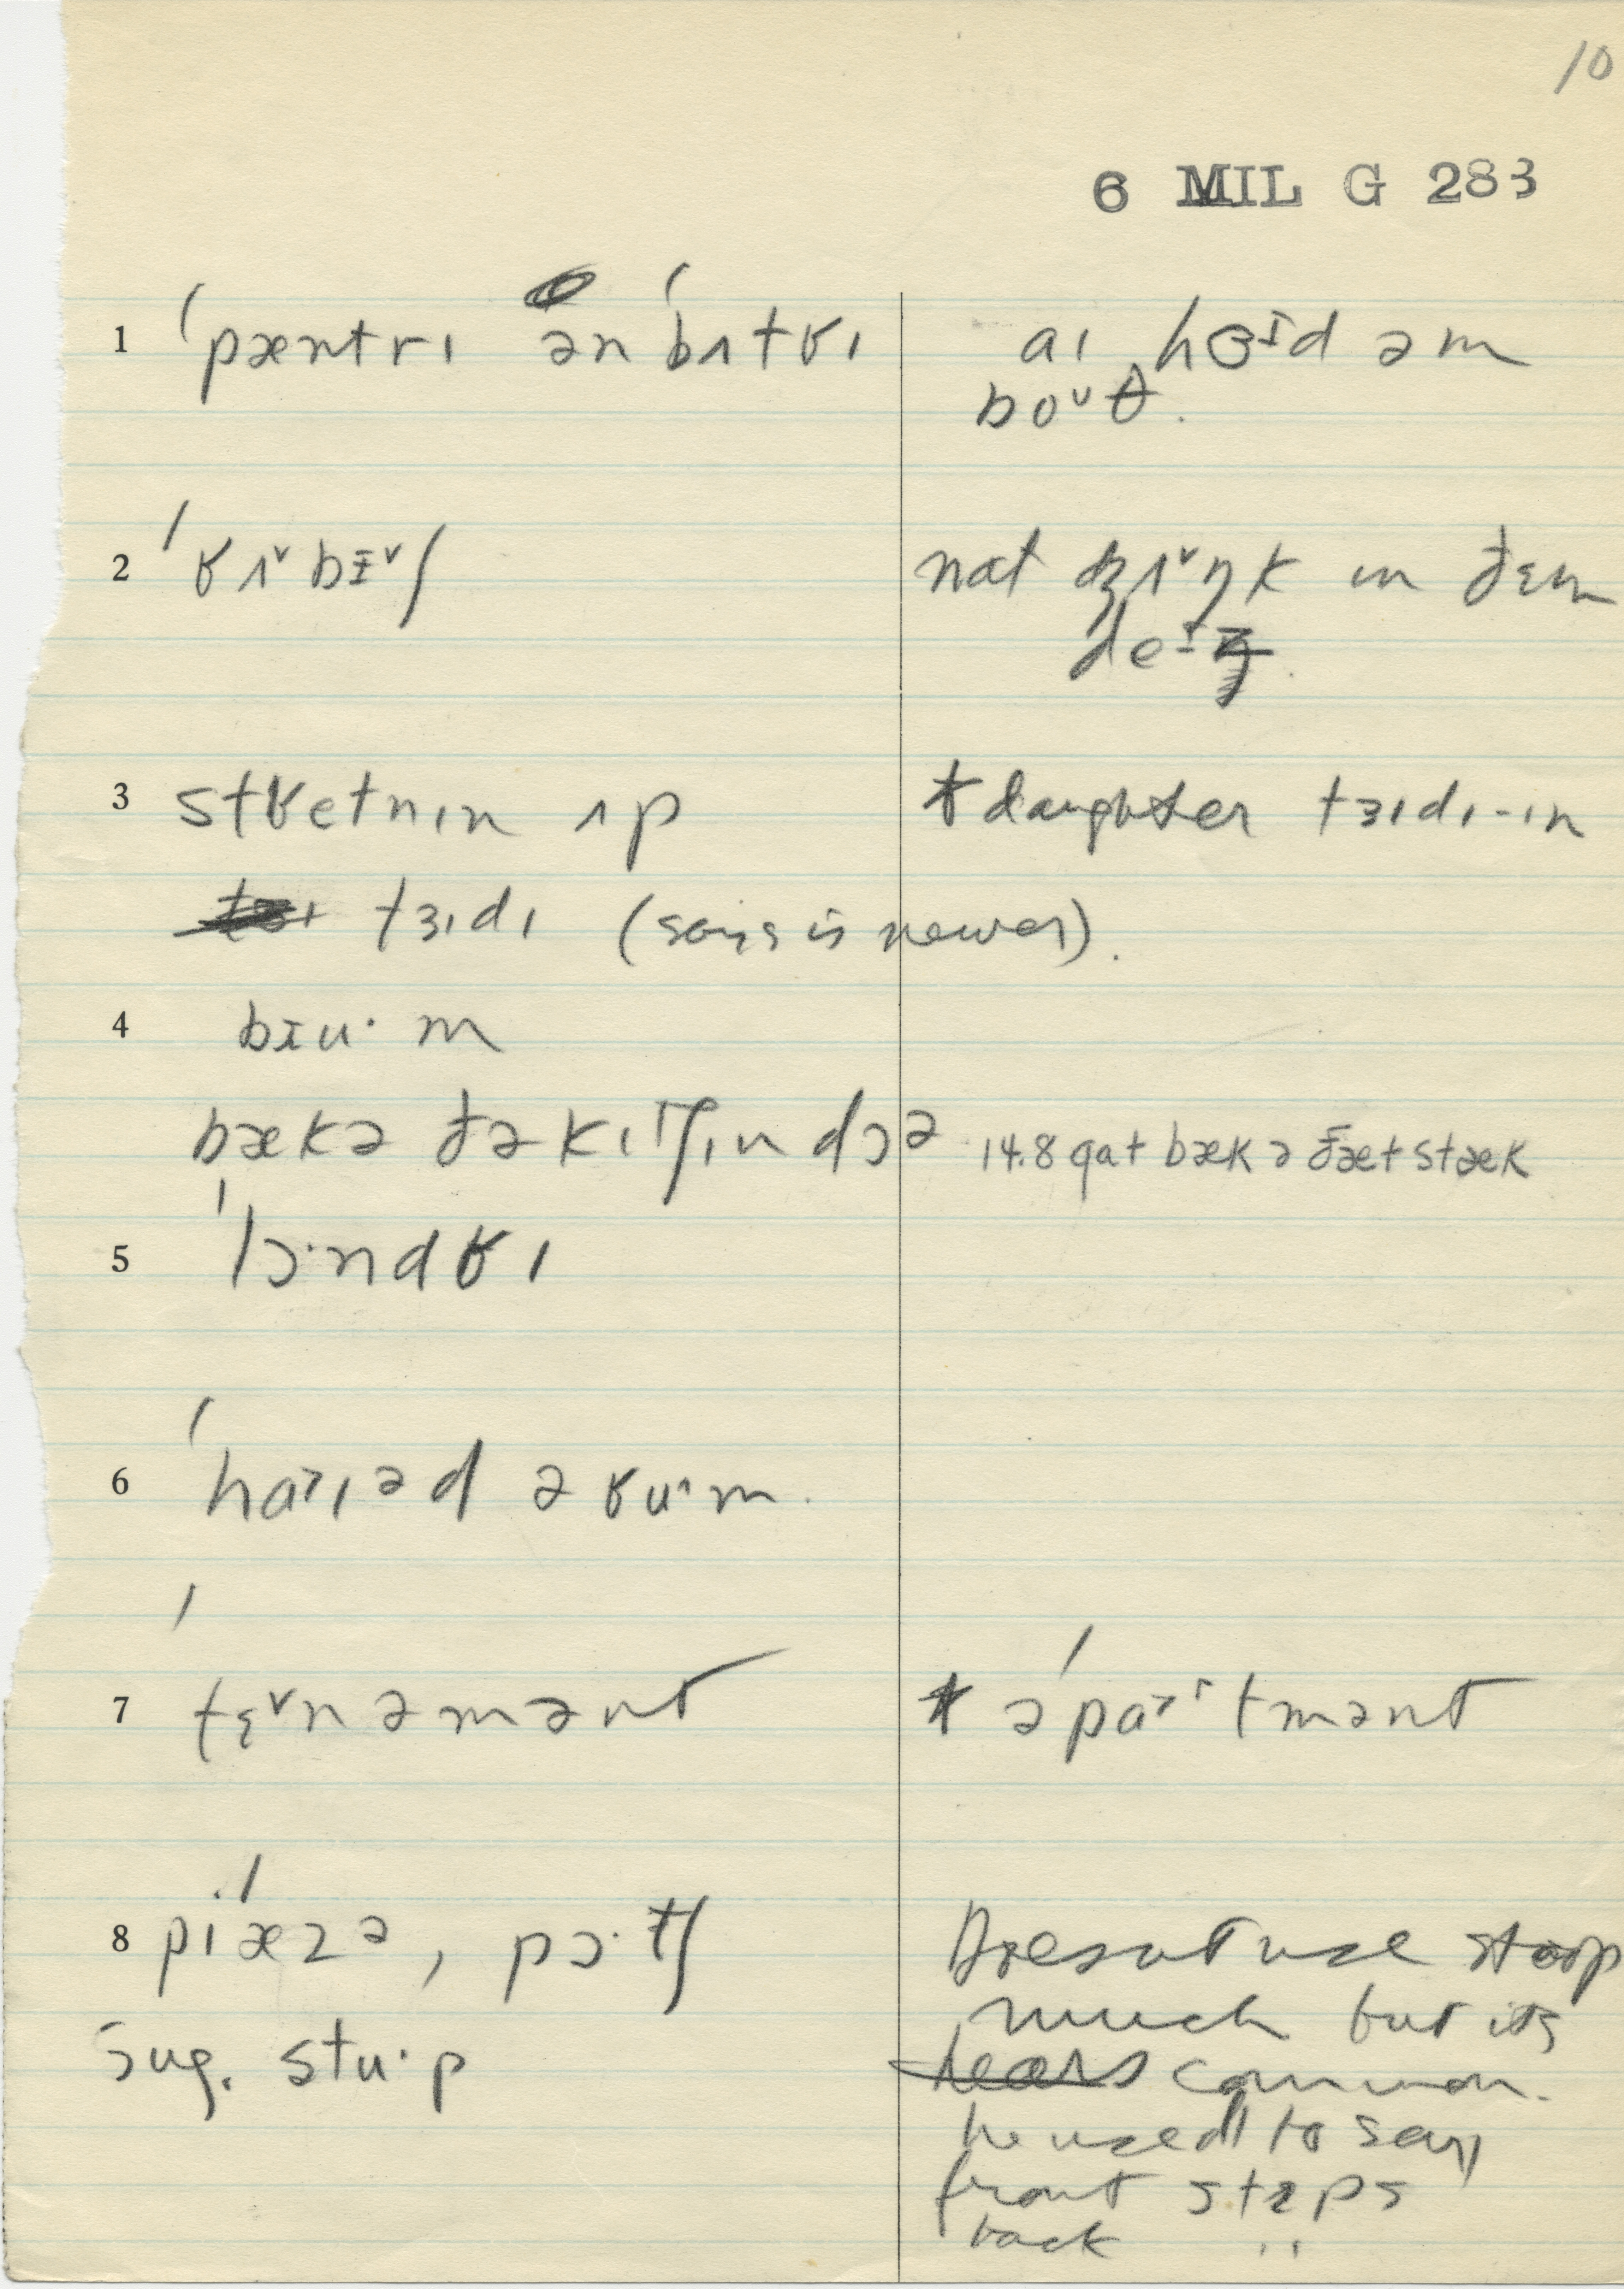 10
6 MIL G 283
1 ˈpæntrɪ ən ˈbʌtʁɪ aɪ hɜɪd əm
boᵘθ.
2 ˈʁʌ˅bɪ˅ʃ nat dʒʌ˅ŋk ɪn ðɛm
deɪz.
3 stʁetnɪn ʌp * daughter tɜɪdɪ-ɪn
tɜɪdɪ (says is newer).
4 bɪuˑm
bækə ðə kɪtʃɪn dɔə 14.8 gat bækə ðæt stæk
5 ˈlɔˑndʁɪ
6 ˈhaɪəd ə ʁuˑm.
7 ˈtɛ˅nəmənt * əˈpaˑtmənt
8 pɪˈæzə, pɔˑtʃ Doesn't use stoop
much but its
sug. stuˑp common.
he used to say
front steps
back "